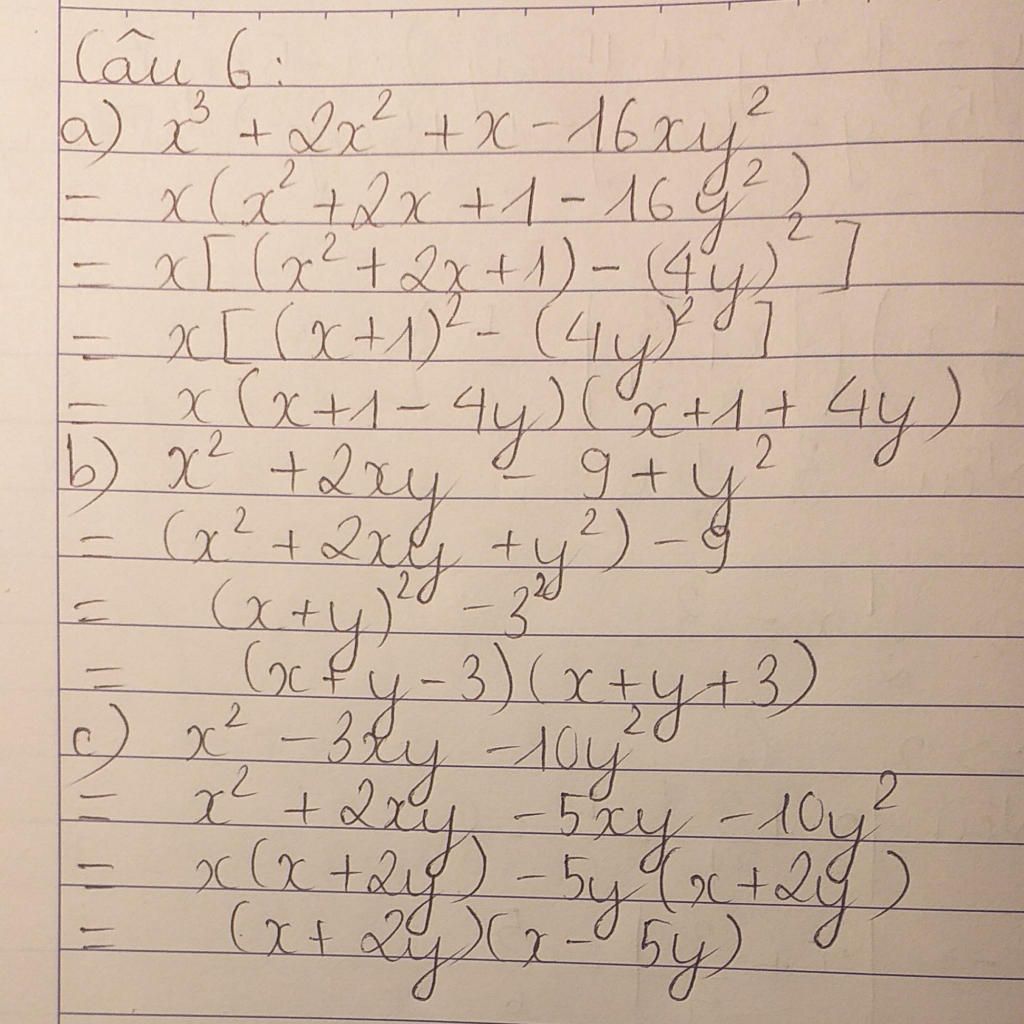 Câu 6:
a) x³ + 2x² + x - 16xy²
= x(x² + 2x + 1 - 16y²)
= x[(x² + 2x + 1) - (4y)²]
= x[(x + 1)² - (4y)²]
= x(x + 1 - 4y)(x + 1 + 4y)
b) x² + 2xy - 9 + y²
= (x² + 2xy + y²) - 9
= (x + y)² - 3²
= (x + y - 3)(x + y + 3)
c) x² - 3xy - 10y²
= x² + 2xy - 5xy - 10y²
= x(x + 2y) - 5y(x + 2y)
= (x + 2y)(x - 5y)